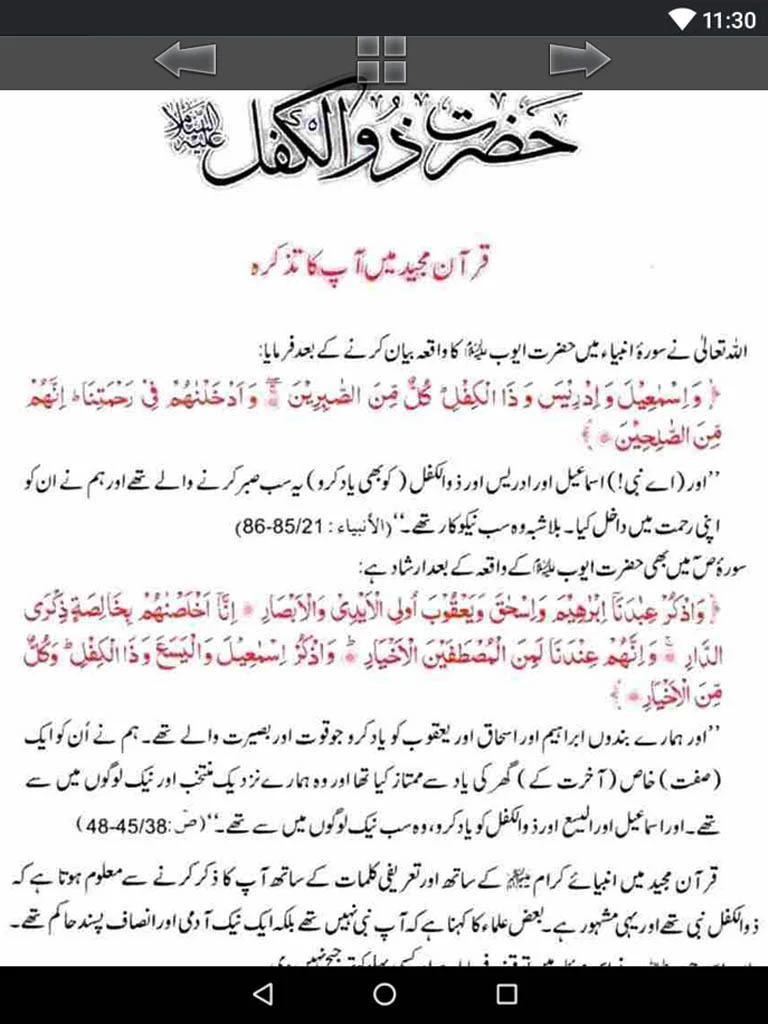 11:30
حضرت ذُو الکفل علیہ السلام
قرآن مجید میں آپ کا تذکرہ
اللہ تعالیٰ نے سورۂ انبیاء میں حضرت ایوب علیہ السلام کا واقعہ بیان کرنے کے بعد فرمایا:
﴿ وَاِسْمٰعِيْلَ وَاِدْرِيْسَ وَذَا الْكِفْلِ ؕ كُلٌّ مِّنَ الصّٰبِرِيْنَ ۚ وَاَدْخَلْنٰهُمْ فِيْ رَحْمَتِنَا ؕ اِنَّهُمْ
مِّنَ الصّٰلِحِيْنَ ﴾
”اور (اے نبی!) اسماعیل اور ادریس اور ذوالکفل (کو بھی یاد کرو) یہ سب صبر کرنے والے تھے اور ہم نے ان کو
اپنی رحمت میں داخل کیا۔ بلاشبہ وہ سب نیکوکار تھے۔“ (الأنبیاء: 86-85/21)
سورۂ صٓ میں بھی حضرت ایوب علیہ السلام کے واقعہ کے بعد ارشاد ہے:
﴿ وَاذْكُرْ عِبٰدَنَآ اِبْرٰهِيْمَ وَاِسْحٰقَ وَيَعْقُوْبَ اُولِي الْاَيْدِيْ وَالْاَبْصَارِ ۞ اِنَّآ اَخْلَصْنٰهُمْ بِخَالِصَةٍ ذِكْرَى
الدَّارِ ۚ وَاِنَّهُمْ عِنْدَنَا لَمِنَ الْمُصْطَفَيْنَ الْاَخْيَارِ ؕ وَاذْكُرْ اِسْمٰعِيْلَ وَالْيَسَعَ وَذَا الْكِفْلِ ؕ وَكُلٌّ
مِّنَ الْاَخْيَارِ ﴾
”اور ہمارے بندوں ابراہیم اور اسحاق اور یعقوب کو یاد کرو جو قوت اور بصیرت والے تھے۔ ہم نے اُن کو ایک
(صفت) خاص (آخرت کے) گھر کی یاد سے ممتاز کیا تھا اور وہ ہمارے نزدیک منتخب اور نیک لوگوں میں سے
تھے۔ اور اسماعیل اور الیسع اور ذوالکفل کو یاد کرو، وہ سب نیک لوگوں میں سے تھے۔“ (صٓ: 48-45/38)
قرآن مجید میں انبیائے کرام علیہم السلام کے ساتھ اور تعریفی کلمات کے ساتھ آپ کا ذکر کرنے سے معلوم ہوتا ہے کہ
ذوالکفل نبی تھے اور یہی مشہور ہے۔ بعض علماء کا کہنا ہے کہ آپ نبی نہیں تھے بلکہ ایک نیک آدمی اور انصاف پسند حاکم تھے۔